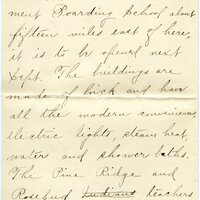 ment Boarding School about
fifteen miles east of here,
it is to be opened next
Sept. The buildings are
made of brick and have
all the modern conveniences
electric lights, steam heat,
waters and shower baths.
The Pine Ridge and
Rosebud Indians teachers